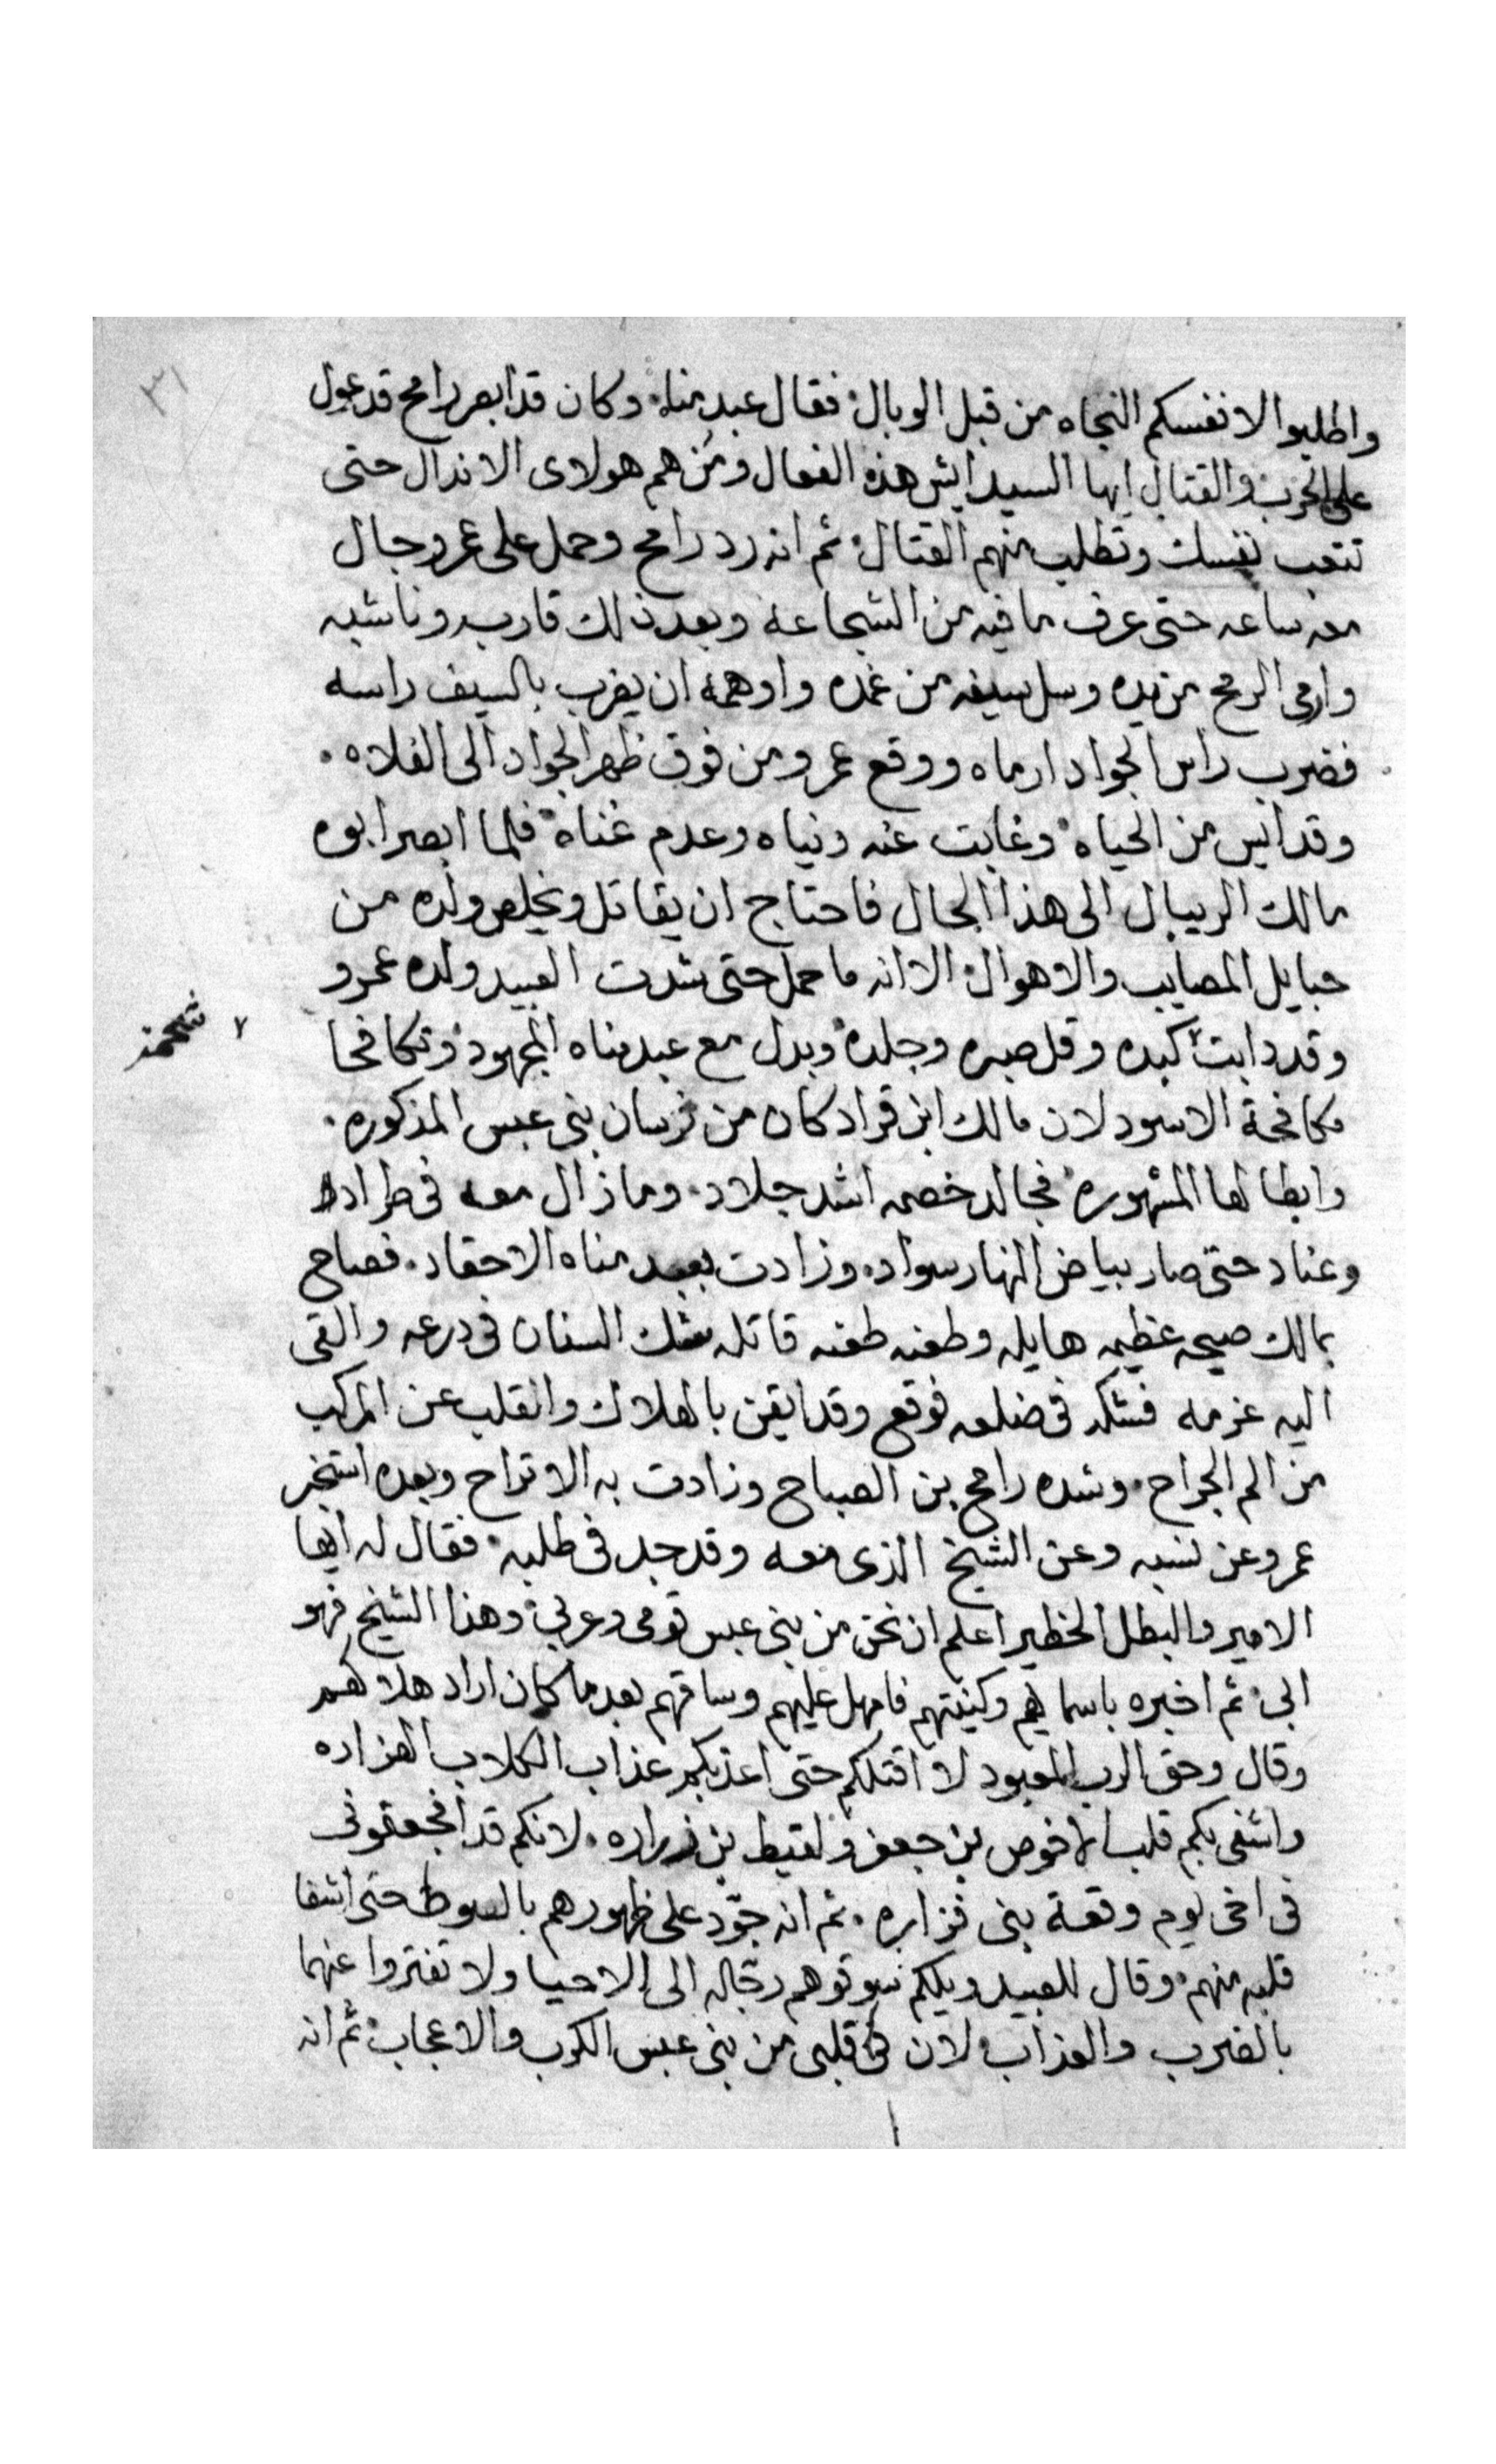 ٣١
واطلبوا لانفسكم النجاه من قبل الوبال فقال عبد مناه وكان قد ابصر رامح قد عول
على الحرب والقتال ايها السيد ايش هذه الفعال ومن هم هولاى الاندال حتى
تتعب نفسك وتطلب منهم القتال ثم انه رد رامح وحمل على عمرو جال
معه ساعه حتى عرف ما فيه من الشجاعة وبعد ذلك قاربه وناشبه
وارمى الرمح من يده وسل سيفه من غمده واوهمه ان يضرب بالسيف راسه
فضرب راس الجواد ارماه ووقع عمرو من فوق ظهر الجواد الى الفلاه
وقد ايس من الحياه وغابت عنه دنياه وعدم غناه فلما ابصر ابوه
مالك الريبال الى هذا الحال فاحتاج ان يقاتل ويخلص ولده من
حبايل المصايب والاهوال الا انه ما حمل حتى شدت العبيد ولده عمرو
وقد دابت كبده وقل صبره وجلده وبدل مع عبد مناه المجهود وتكافحا
مكافحة الاسود لان مالك ابن قراد كان من فرسان بنى عبس المذكوره
وابطالها المشهوره فجالد خصمه اشد جلاد وما زال معه فى طراد
وعناد حتى صار بياض النهار سواد وزادت بعبد مناه الاحقاد فصاح
بمالك صيحه عظيمه هايله وطعنه طعنه قاتله شك السنان فى درعه والقى
اليه عزمه فشكه فى ضلعه فوقع وقد ايقن بالهلاك وانقلب عن المركب
من الم الجراح وشده رامح بن الصباح وزادت به الاتراح وبعده استخبر
عمرو عن نسبه وعن الشيخ الذى معه وقد جد فى طلبه فقال له ايها
الامير والبطل الخطير اعلم ان نحن من بنى عبس قومى وعربى وهذا الشيخ فهو
ابى ثم اخبره باسمايهم وكنيتهم فامهل عليهم وساقهم بعد ما كان اراد هلاكهم
وقال وحق الرب المعبود لا اقتلكم حتى اعذبكم عذاب الكلاب الهزاره
واشفى بكم قلب الاخوص بن جعفر ولقيط بن زراره لانكم قد افجعتونى
فى اخى يوم وقعة بنى فزاره ثم انه جود على ظهورهم بالسوط حتى اشفا
قلبه منهم وقال للعبيد ويلكم سوقوهم رجاله الى الاحيا ولا تفتروا عنهما
بالضرب والعذاب لان فى قلبى من بنى عبس الكرب والاعجاب ثم انه